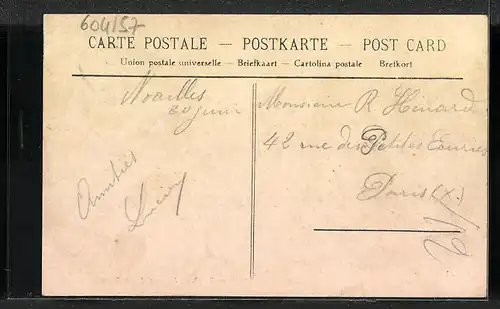 604/57
CARTE POSTALE — POSTKARTE — POST CARD
Union postale universelle — Briefkaart — Cartolina postale Brefkort
Noailles
20 juin
Amitiés
Lucien
Monsieur R Hénard
42 rue des Petites Ecuries
Paris (X.)